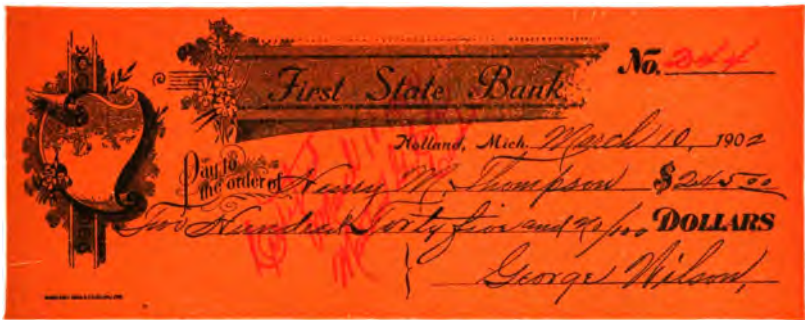 No. 244
First State Bank
Holland, Mich. March 10, 1902
Pay to the order of Henry M. Thompson $245.00
Two Hundred Forty five and no/100 DOLLARS
George Wilson,